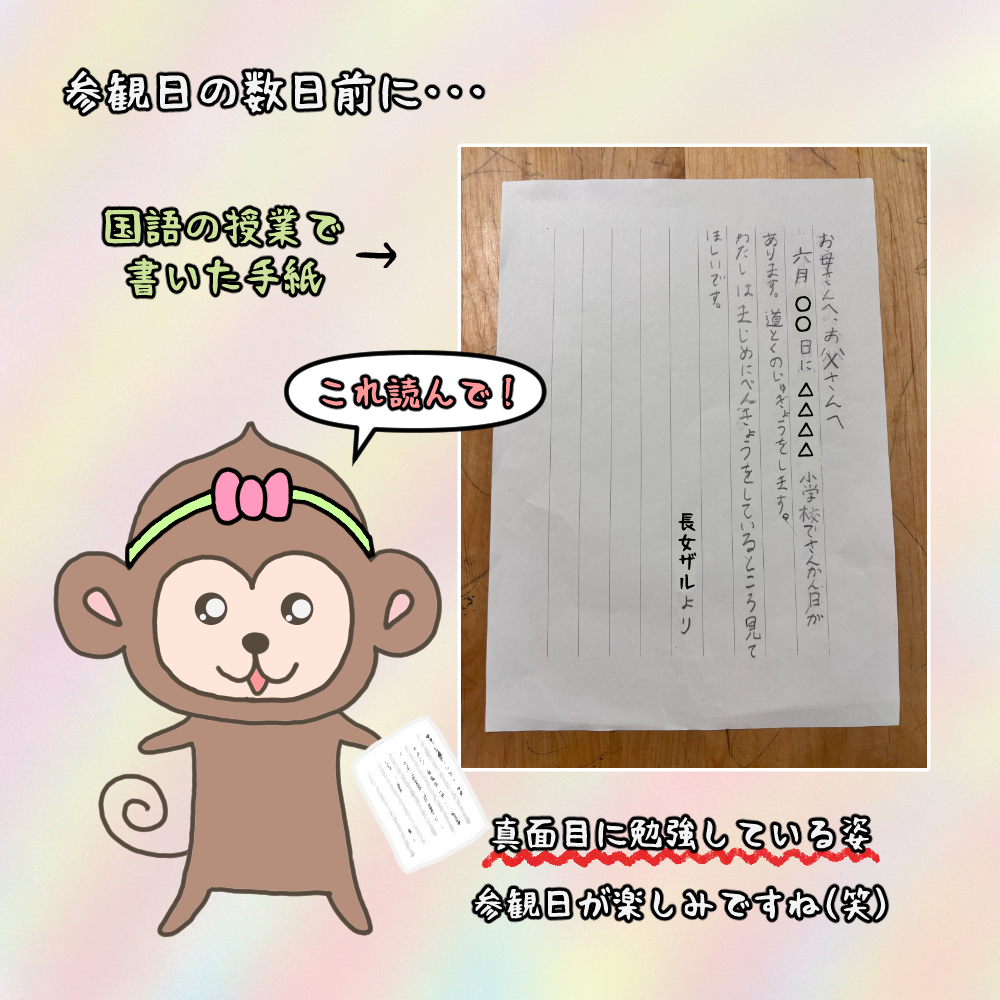 参観日の数日前に・・・
国語の授業で
書いた手紙
→
これ読んで！
お母さんへ、お父さんへ
六月〇〇日に△△△△小学校でさんかん日が
あります。道とくのじゅぎょうをします。
わたしはまじめにべんきょうをしているところ見て
ほしいです。
長女ザルより
真面目に勉強している姿
参観日が楽しみですね(笑)